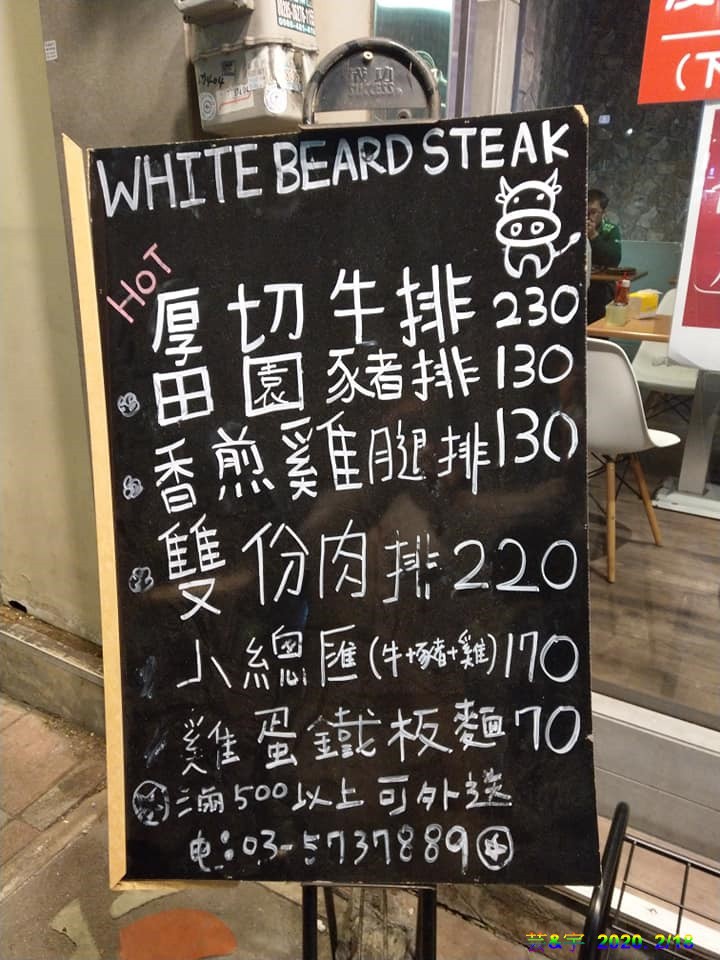 成功
SUCCESS
(下
WHITE BEARD STEAK
HOT
厚切牛排 230
田園豬排 130
香煎雞腿排 130
雙份肉排 220
小總匯(牛+豬+雞) 170
雞蛋鐵板麵 70
滿500以上可外送
电:03-5737889
2020 2/18